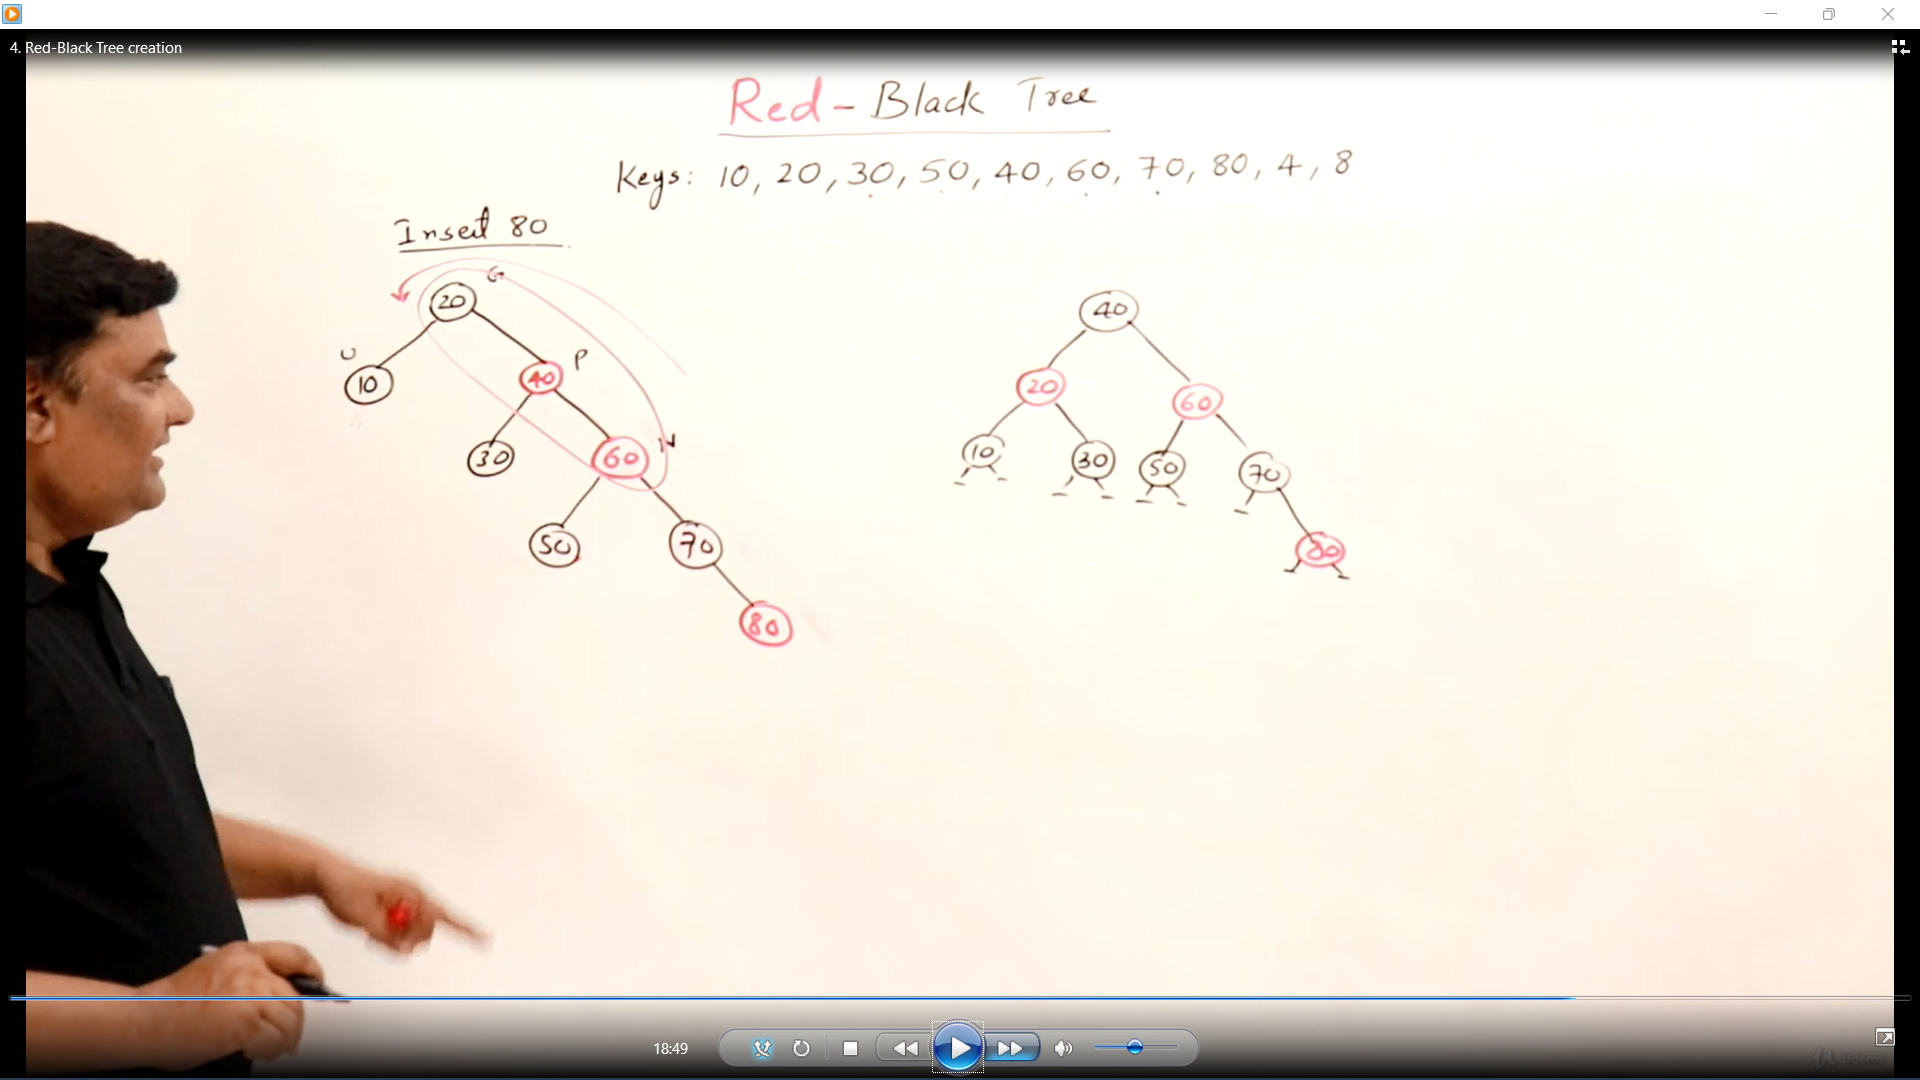 4. Red-Black Tree creation
Red - Black Tree
Keys: 10, 20, 30, 50, 40, 60, 70, 80, 4, 8
Insert 80
G
20
U
10
P
40
30
N
60
50
70
80
40
20
60
10
30
50
70
80
18:49
Udemy